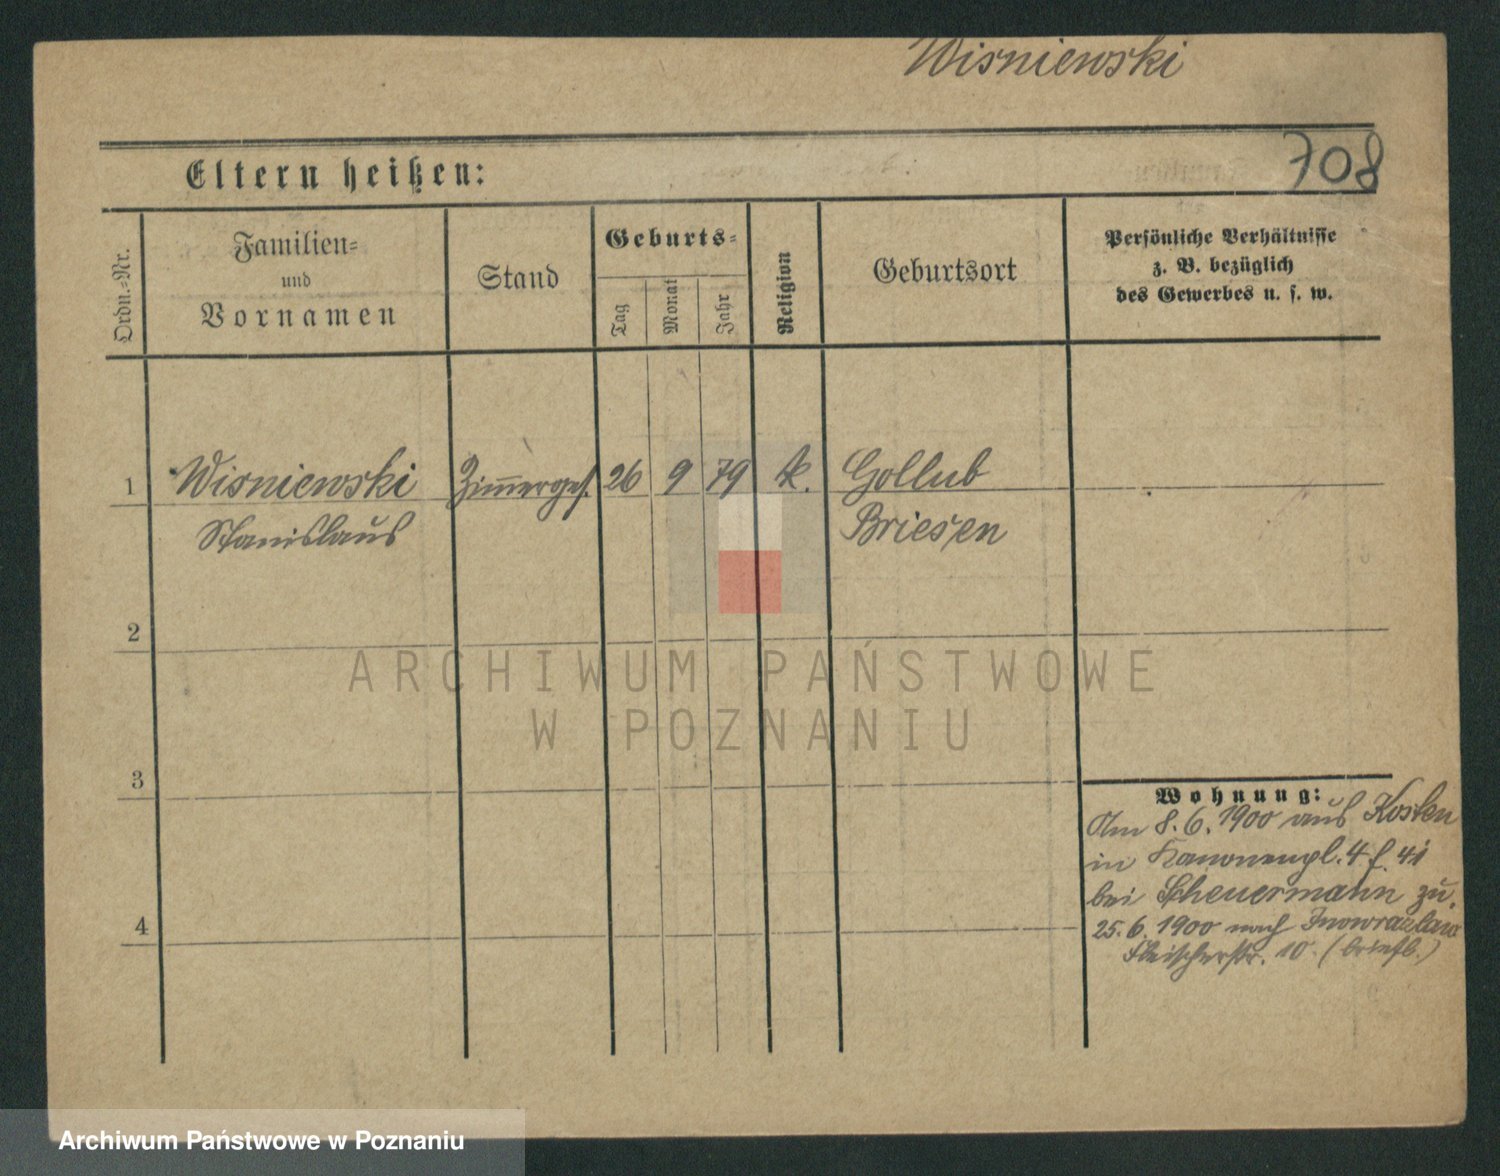 Wisniewski
708
Eltern heißen:
Ordn.-Nr.
Familien-
und
Vornamen
Stand
Geburts-
Tag
Monat
Jahr
Religion
Geburtsort
Persönliche Verhältnisse
z. B. bezüglich
des Gewerbes u. s. w.
1 Wisniewski Zimmerges. 26 9 79 k. Gollub
Stanislaus Briesen
2
ARCHIWUM PAŃSTWOWE
W POZNANIU
3
Wohnung:
Am 8. 6. 1900 aus Kosten
in Kanonenpl. 4
bei Scheuermann zu.
4
25. 6. 1900 nach Inowrazlaw
Fleischerstr. 10 (briefl.)
Archiwum Państwowe w Poznaniu